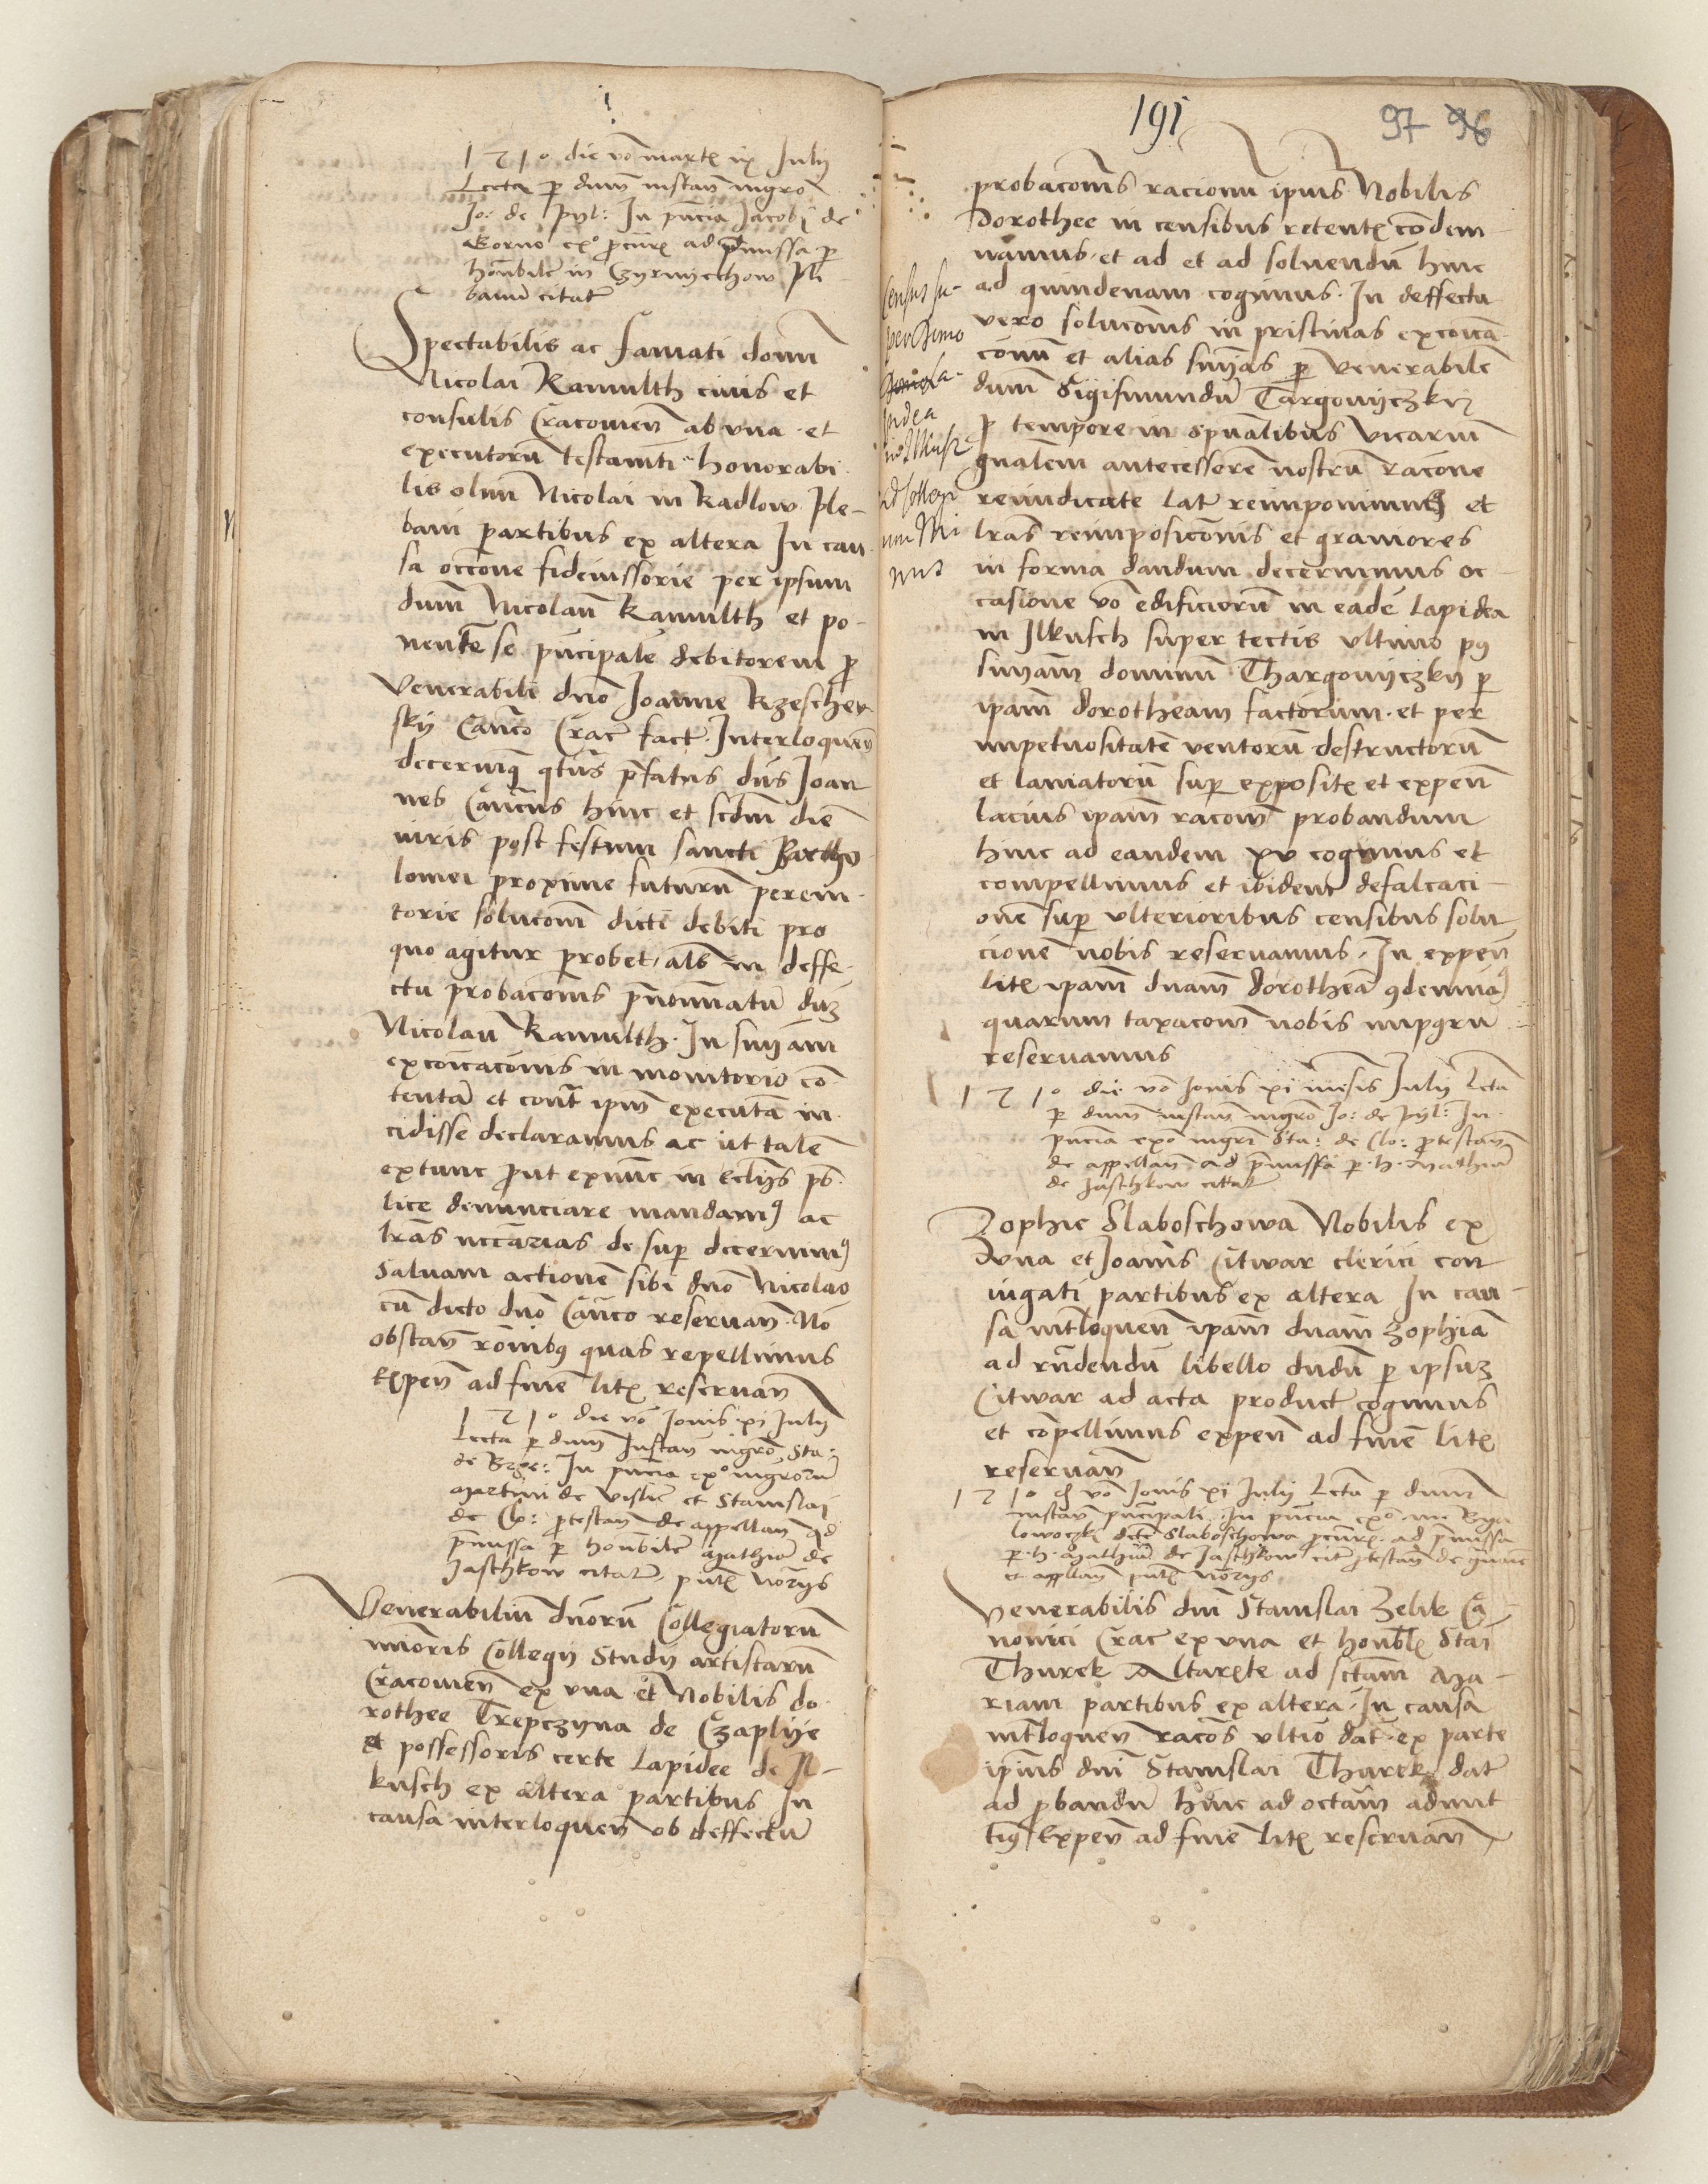 1510 die vo mart ix Julij
Lecta p dum instan mgro
Jo: de pyl: In pncia Jacobi de
Korno ex° pcure ad pmissa p
honbile in Czyrnychow ple
banu citat
Spectabilis ac famati domi
Nicolai Kamulth civis et
consulis Cracovien ab una et
executoru testamti honorabi
lis olim Nicolai in Radlow ple-
bani partibus ex altera In cau
sa occone fideiussorie per ipsum
dum Nicolau Kamulth et po-
nente se pncipale debitorem p
Venerabili dno Joanne Rzeschew
skij Canco Crac fact Interloquen
decernimq qtus pfatus dns Joan
nes Cancus hinc et scdm die
iuris post festum sancti Bartho
lomei proxime futurum perem-
torie solucom dicti debiti pro
quo agitur probet, als in deffe-
ctu probacomis pnominatu duz
Nicolau Kamulth In snijam
excoicacionis in monitorio co
tenta et cont ipm executa in
cidisse declaramus ac ut tale
extunc put exnunc in ecclijs pb
lice denunciare mandam9 ac
lras nccarias de sup decernim9
salvam actione sibi dno Nicolao
cu dicto dno Canco reservan No
obstan ronibus quas repellimus
Expen ad fine lit reservan
1510 die vo Jovis xi Julij
Lecta p dum Instan mgro Sta:
de Bze: In pncia ex° mgroru
Martini de Vislic et Stanislai
de Clo: ptestan de appellan ad
pmissa p honbile Mathia de
Jaschkow citat pnt norijs
Venerabiliu dnoru Collegiatoru
minoris Collegij Studij artistaru
Cracovien ex una et Nobilis do
rothee Trepczyna de Czaplije
et possessoris certe lapidee de Il-
kusch ex altera partibus In
causa interloquen ob deffectu
191
97 96
probacomis racionu ipius Nobilis
Dorothee in censibus retent codem
namus et ad et ad solvendu hinc
ad quindenam cogimus In deffectu
vero solucomis in pristinas excoica
conu et alias snijas p venerabile
dum Sigismundu Targowyczkij
p tempore in spualibus vicariu
gnalem antecessore nostru racone
reiudicate lat reimponimus et
lras reimposicomis et gramores
in forma dandum decernimus oc
casione vo edificioru in eade lapidea
in Ilkusch super tectis ultimo p9
snijam dominu Thargowyczky p
ipam dorotheam factorum et per
impetuositate ventoru destructoru
et laniatoru sup exposit et expen
lacius ipam racom probandum
hinc ad eandem xv cogimus et
compellimus et ibidem defalcaci-
one sup ulterioribus censibus solu
cione nobis reservamus In expen
lit ipam dnam dorothea 9denna9
quarum taxacom nobis imp9ru
reservamus
Census su-
per domo
la-
pidea
in Ilkusz
ad collegi
um Mi
nus
1510 die vo Jovis xi mesis Julij Lcta
p dum instan mgro Jo: de pyl: In
pncia ex° mgri Sta: de Clo: ptestan
de appellan ad pmissa p h Mathia
de Jaschkow citat
Zophie Slaboschowa Nobilis ex
una et Joanis Citwar clerici con
iugati partibus ex altera In cau-
sa intloquen ipam dnam zophia
ad rndendu libello dudu p ipsuz
Citwar ad acta product cogimus
et copellimus expen ad fine lit
reservan
1510 d vo Jovis xi Julij Lcta p dum
instan pncipali In pncia ex°
dcte Slaboschowa pcure ad pmissa
p h Mathia de Jaschkow cit ptestan de
et appellan pnt norijs
Venerabilis dni Stanislai Zelik Ca
nonici Crac ex una et honbl Stai
Thurek Altariste ad sctam Ma-
riam partibus ex altera In causa
intloquen racos ultio dat ex parte
ipius dni Stanislai Thurek dat
ad pbandu hinc ad octam admit
tim9 Expen ad fine lit reservan